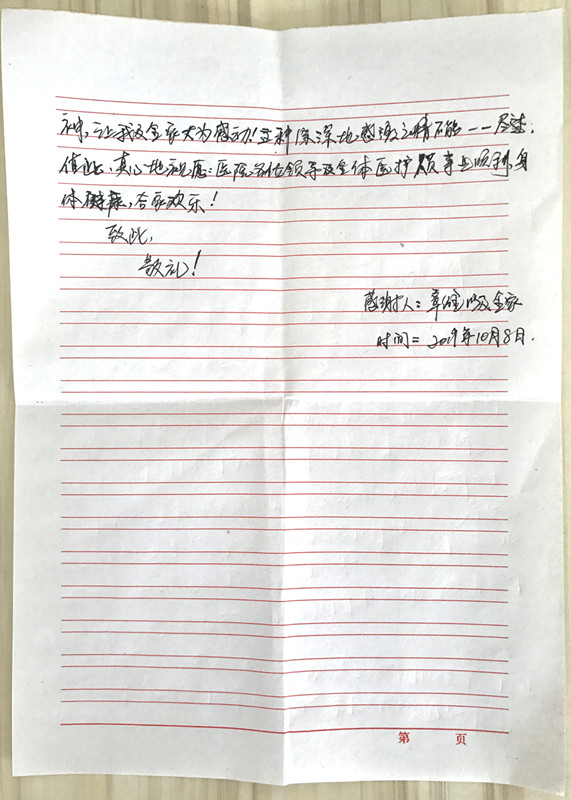 神,让我及全家大为感动!这种深深地感谢之情不能一一尽述.
值此,真心地祝愿:医院各位领导及全体医护 事事顺利,身
体健康,合家欢乐!
致此,
敬礼!
感谢人: 以及全家
时间=2019年10月8日.
第 页